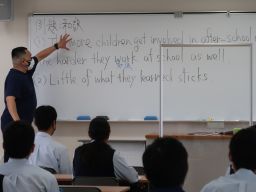 more children get involved in after-school
he harder they work at school as well
2) Little of what they learned sticks